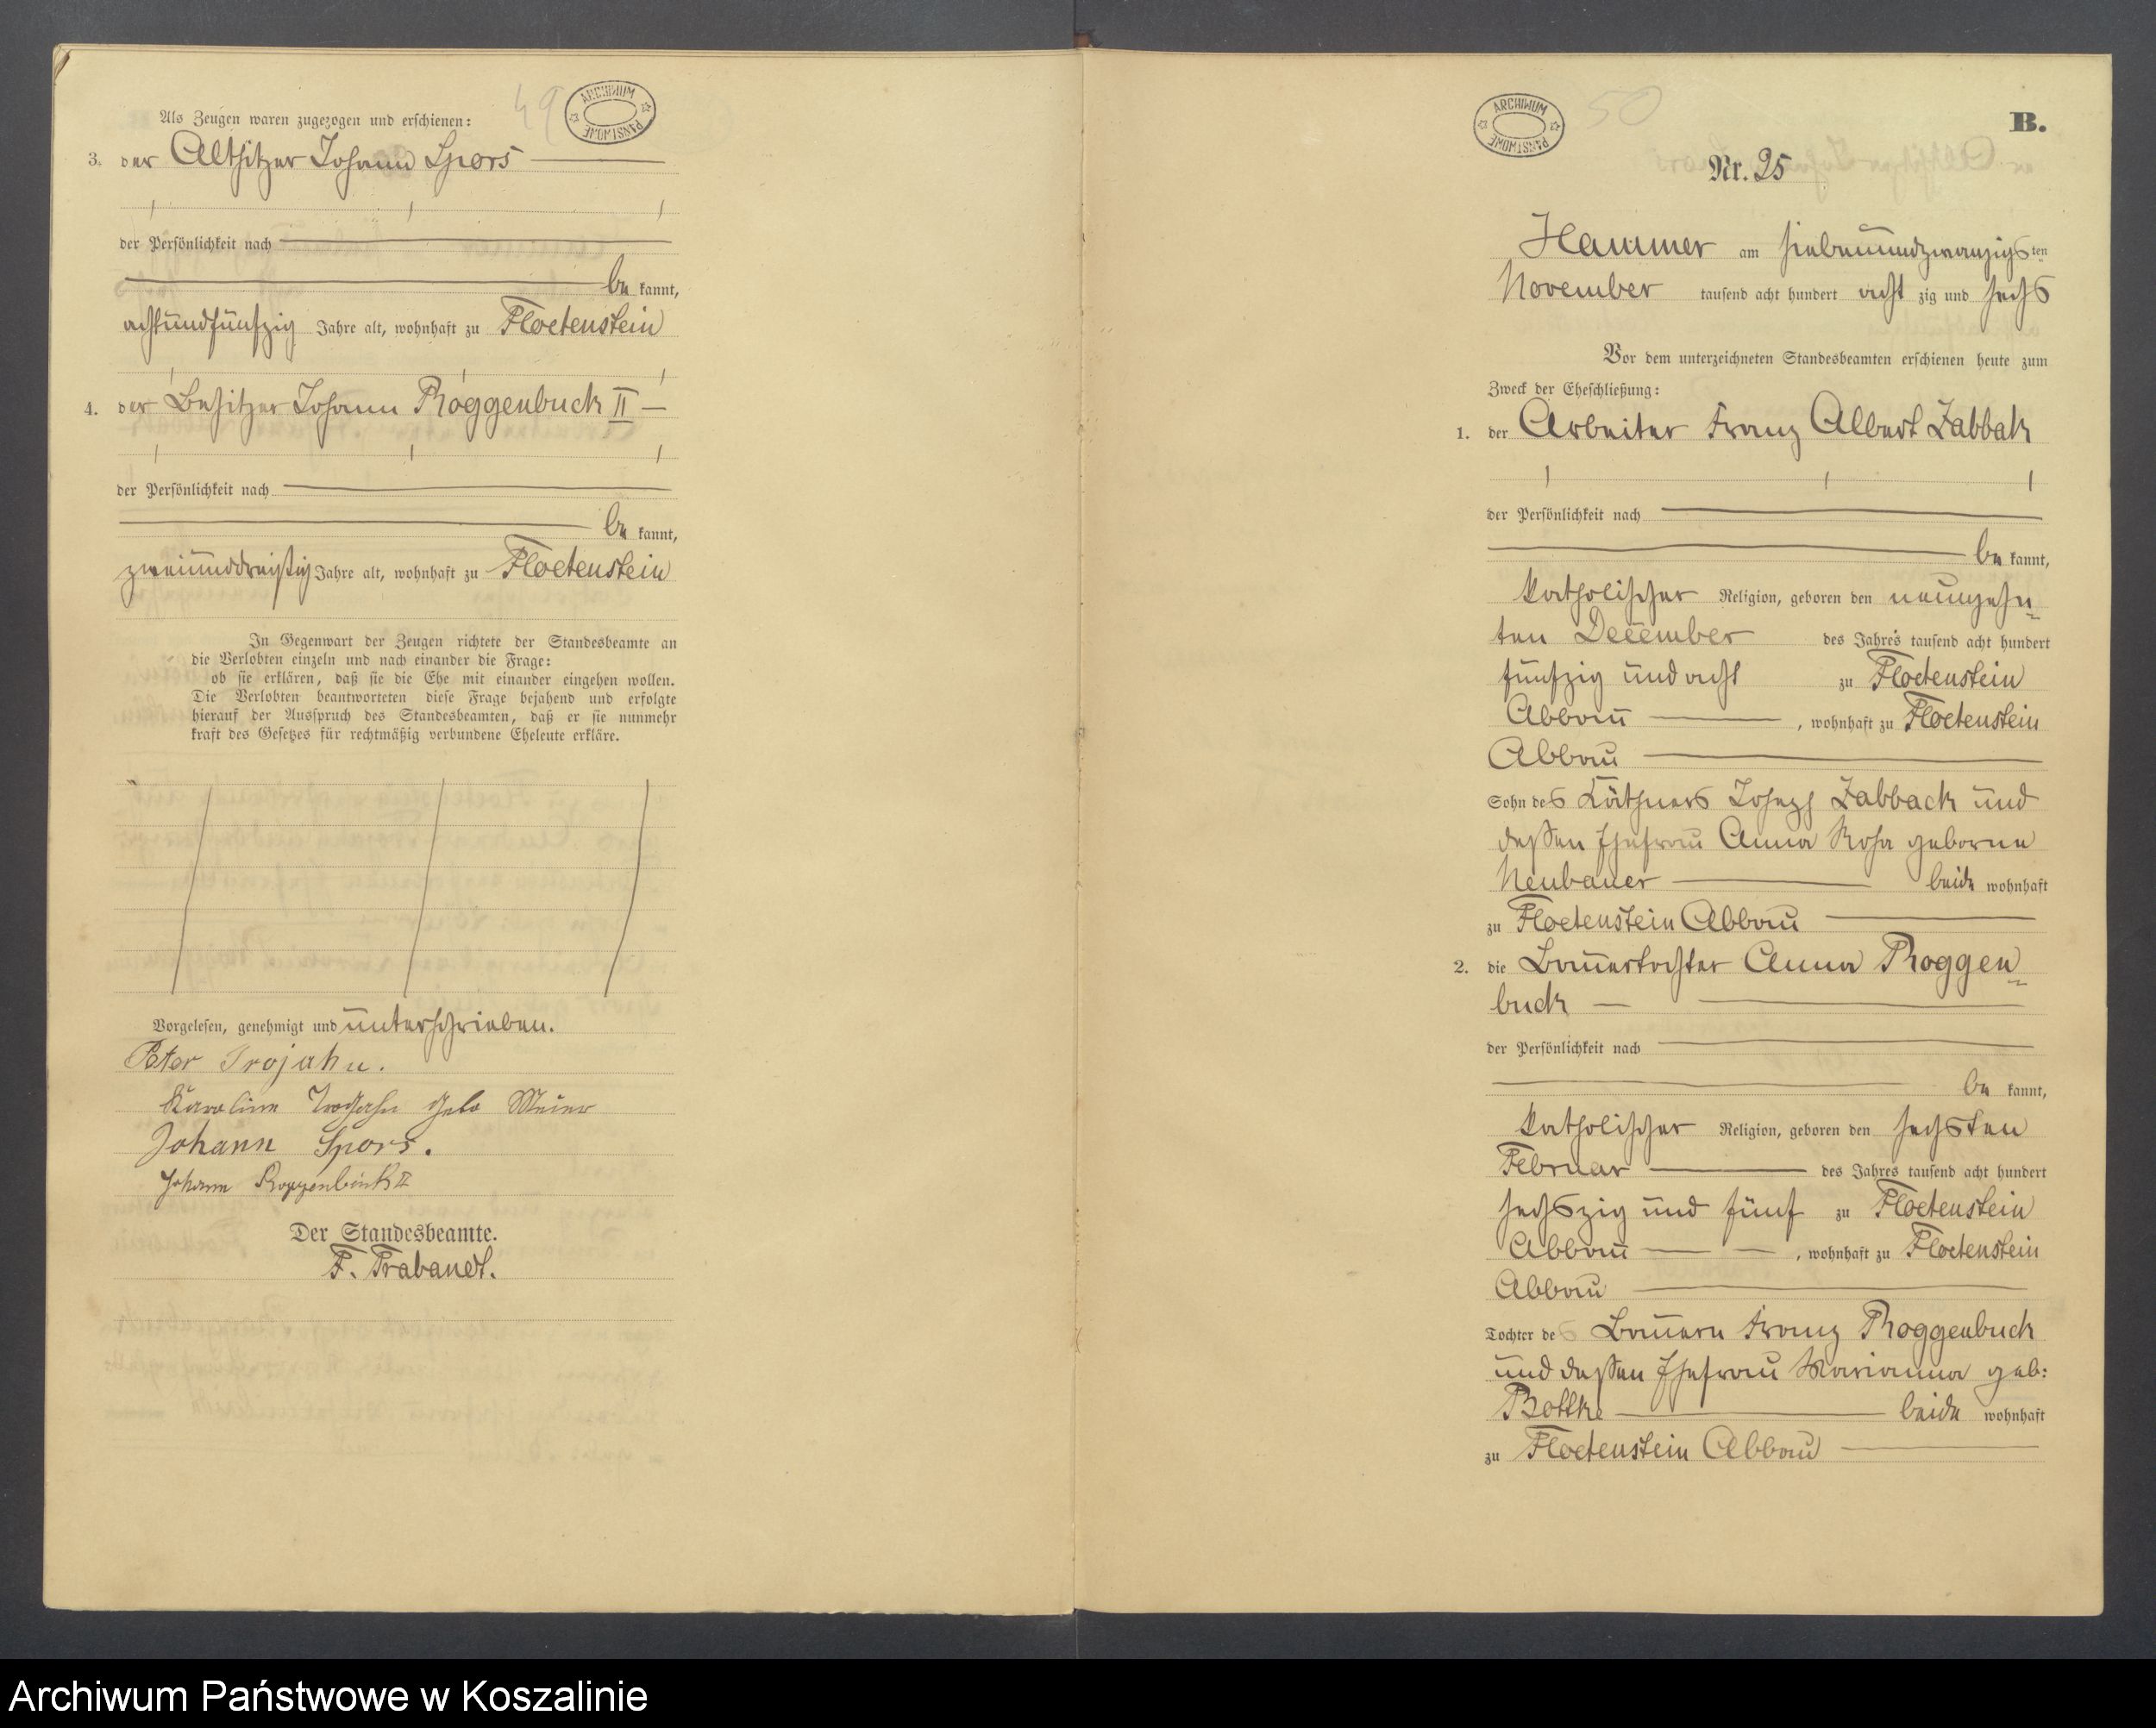 49
ARCHIWUM PAŃSTWOWE
Als Zeugen waren zugezogen und erschienen:
3. der Altsitzer Johann Spors
der Persönlichkeit nach
be kannt,
achtundfünfzig Jahre alt, wohnhaft zu Floetenstein
4. der Besitzer Johann Roggenbuck II
der Persönlichkeit nach
be kannt,
zweiunddreißig Jahre alt, wohnhaft zu Floetenstein
In Gegenwart der Zeugen richtete der Standesbeamte an
die Verlobten einzeln und nach einander die Frage:
ob sie erklären, daß sie die Ehe mit einander eingehen wollen.
Die Verlobten beantworteten diese Frage bejahend und erfolgte
hierauf der Ausspruch des Standesbeamten, daß er sie nunmehr
kraft des Gesetzes für rechtmäßig verbundene Eheleute erkläre.
Vorgelesen, genehmigt und unterschrieben.
Peter Trojahn.
Karoline Trojahn geb Meier
Johann Spors.
Johann Roggenbuck II
Der Standesbeamte.
F. Trabandt.
ARCHIWUM PAŃSTWOWE
50
B.
Nr. 25
Hammer am siebenundzwanzigs ten
November tausend acht hundert acht zig und sechs
Vor dem unterzeichneten Standesbeamten erschienen heute zum
Zweck der Eheschließung:
1. der Arbeiter Franz Albert Zabbak
der Persönlichkeit nach
be kannt,
katholischer Religion, geboren den neunzehn=
ten December des Jahres tausend acht hundert
fünfzig und acht zu Floetenstein
Abbau , wohnhaft zu Floetenstein
Abbau
Sohn des Käthners Joseph Zabback und
deßen Ehefrau Anna Rosa geborne
Neubauer beide wohnhaft
zu Floetenstein Abbau
2. die Bauertochter Anna Roggen=
buck
der Persönlichkeit nach
be kannt,
katholischer Religion, geboren den sechsten
Februar des Jahres tausend acht hundert
sechszig und fünf zu Floetenstein
Abbau , wohnhaft zu Floetenstein
Abbau
Tochter des Bauern Franz Roggenbuck
und deßen Ehefrau Marianna geb:
Bottke beide wohnhaft
zu Floetenstein Abbau
Archiwum Państwowe w Koszalinie